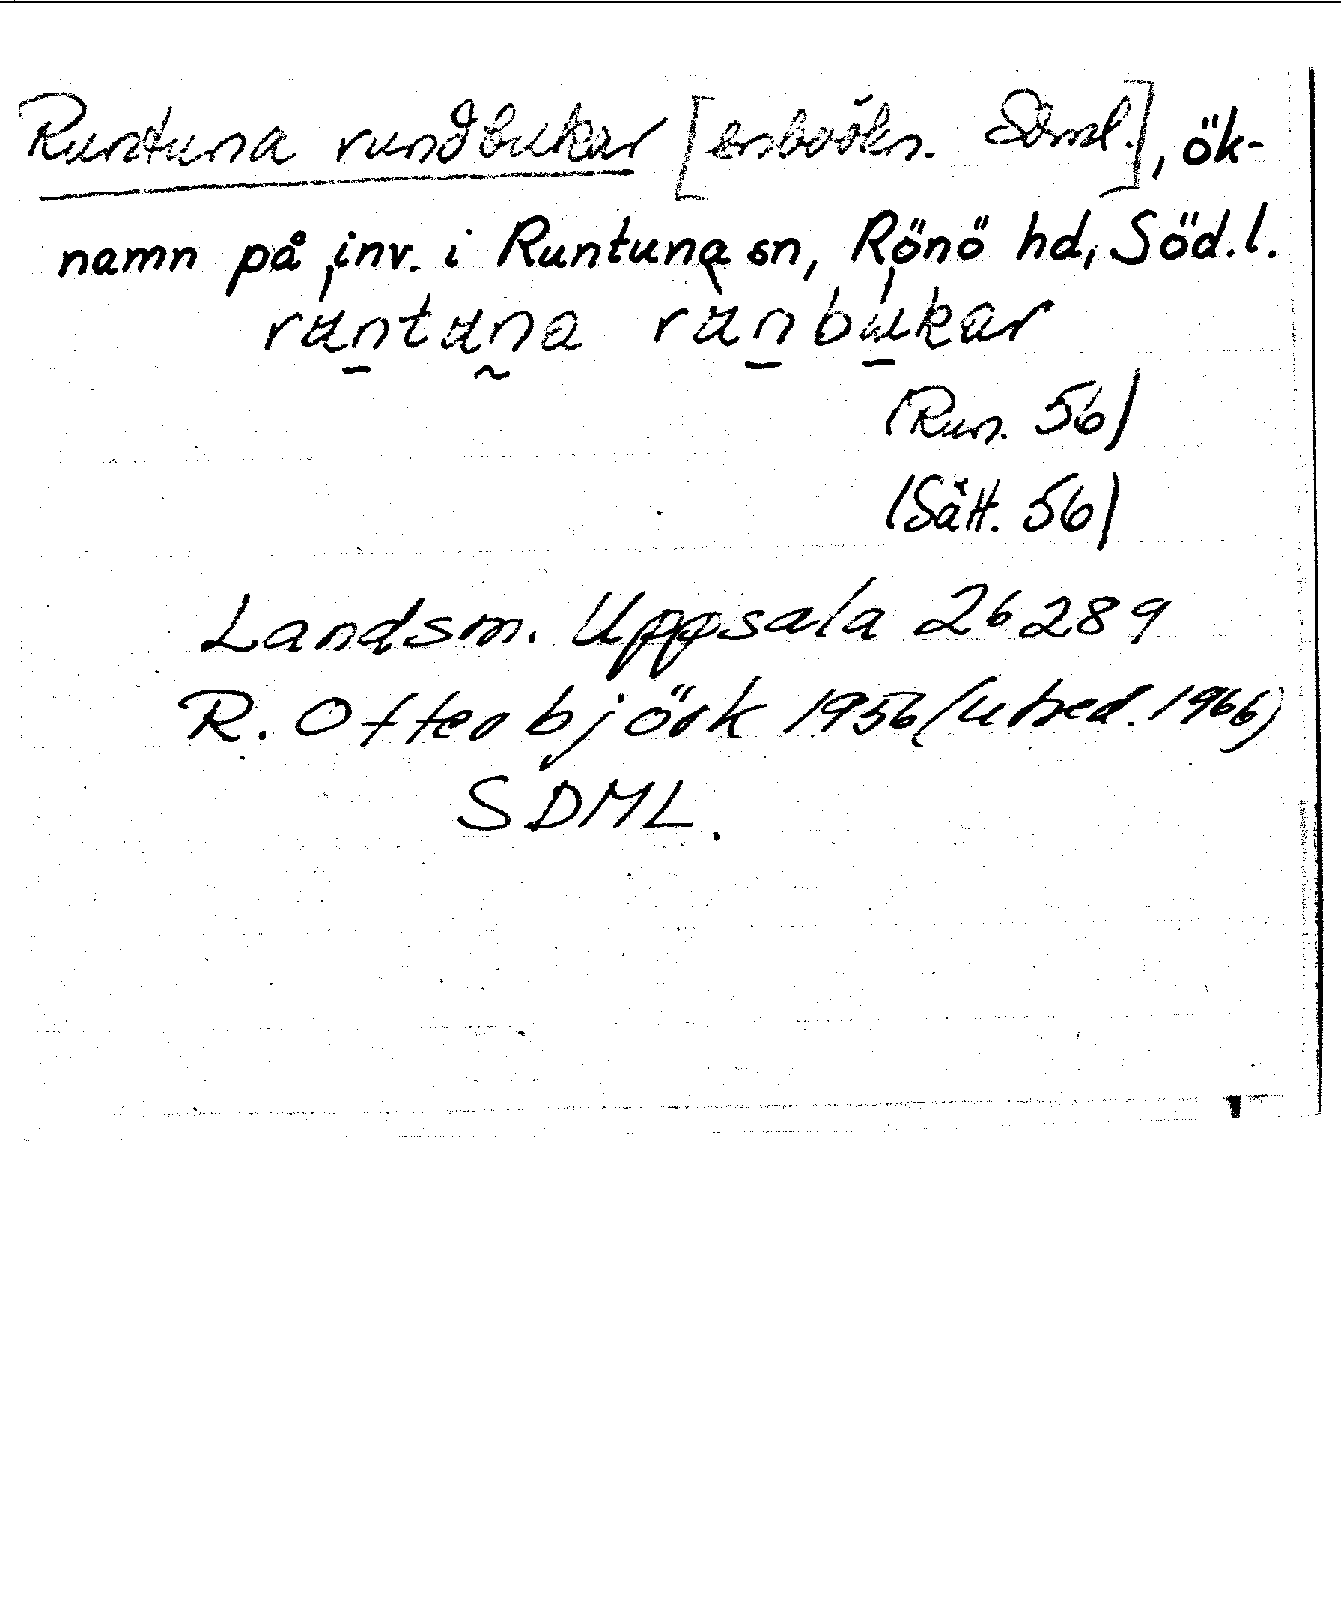 Runtuna rundbukar [ Söml.], ök-
namn på inv. i Runtuna sn, Rönö hd, Söd.l.
rantana ranbukar
(Run. 56)
(Sätt. 56)
Landsm. Uppsala 26289
R. Otterbjörk 1956 (utred. 1966)
SDML.